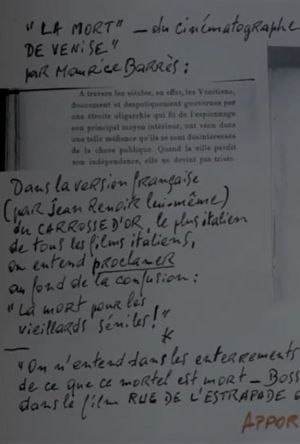 "LA MORT" — du cinématographe
DE VENISE"
par Maurice Barrès :
A travers les siècles, en effet, les Vénitiens,
doucement et despotiquement gouvernés par
une étroite oligarchie qui fit de l'espionnage
son principal moyen intérieur, ont vécu dans
une telle méfiance qu'ils se sont désintéressés
de la chose publique. Quand la ville perdit
son indépendance, elle ne devint pas triste.
Dans la version française
(par Jean Renoir lui-même)
du CARROSSE D'OR, le plus italien
de tous les films italiens,
on entend proclamer
au fond de la confusion :
"La mort pour les
vieillards séniles !"
*
"On n'entend dans les enterrements
de ce que ce mortel est mort — BOSS
dans le film RUE DE L'ESTRAPADE
APPOR